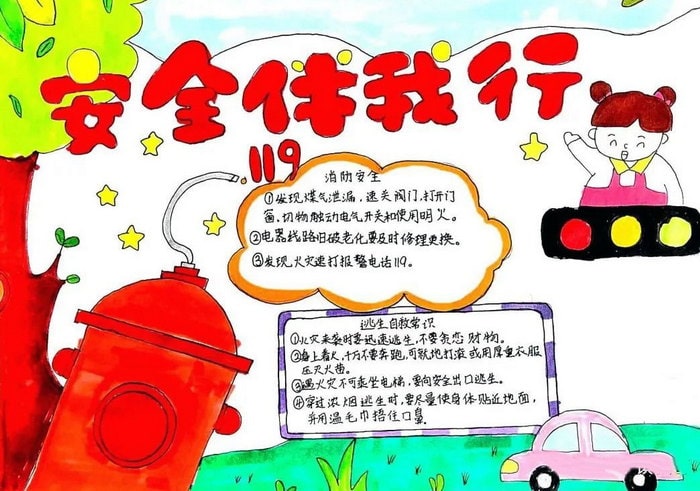 安全伴我行
119
消防安全
①发现煤气泄漏，速关阀门，打开门
窗，切物触动电气开关和使用明火。
②电器线路旧破老化要及时修理更换。
③发现火灾速打报警电话119。
逃生自救常识
①火灾来袭时要迅速逃生，不要贪恋财物。
②身上着火，千万不要奔跑，可就地打滚或用厚重衣服
压灭火苗。
③遇火灾不可乘坐电梯，要向安全出口逃生。
④穿过浓烟逃生时，要尽量使身体贴近地面，
并用湿毛巾捂住口鼻